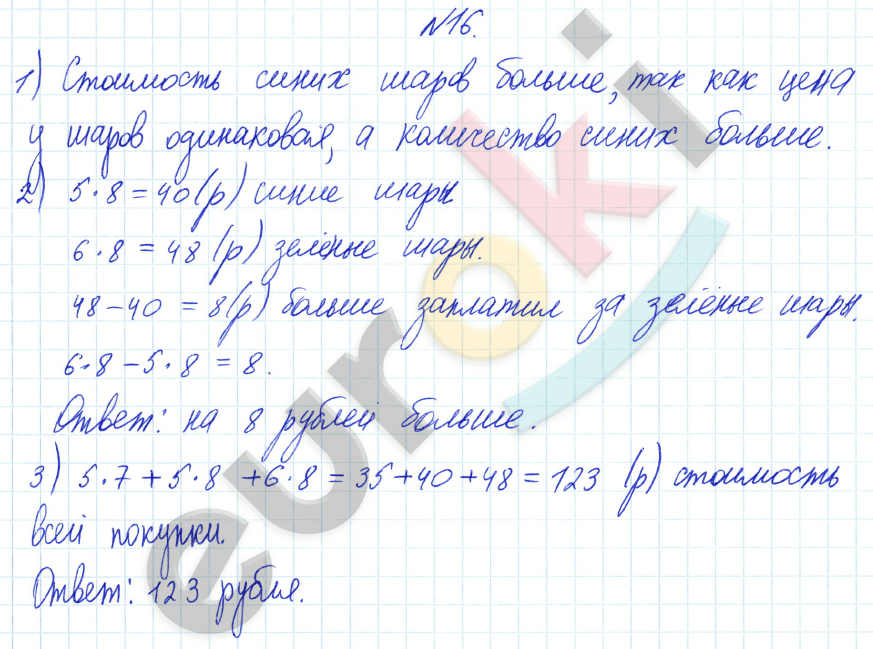 №16.
1) Стоимость синих шаров больше, так как цена
у шаров одинаковая, а количество синих больше.
2) 5·8=40(р) синие шары
6·8=48(р) зелёные шары.
48-40=8(р) больше заплатил за зелёные шары.
6·8-5·8=8.
Ответ: на 8 рублей больше.
3) 5·7+5·8+6·8=35+40+48=123 (р) стоимость
всей покупки.
Ответ: 123 рубля.
euroki